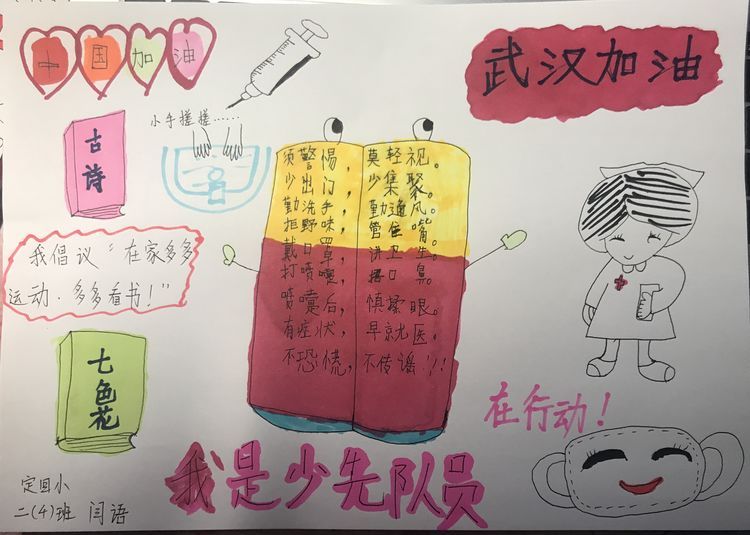 中国加油
武汉加油
小手搓搓……
古诗
须警惕，莫轻视。
少出门，少集聚。
勤洗手，勤通风。
拒野味，管住嘴。
戴口罩，讲卫生。
打喷嚏，捂口鼻。
喷嚏后，慎揉眼。
有症状，早就医。
不恐慌，不传谣！！
我倡议“在家多多
运动．多多看书！”
七色花
在行动！
我是少先队员
定回小
二(4)班 闫语